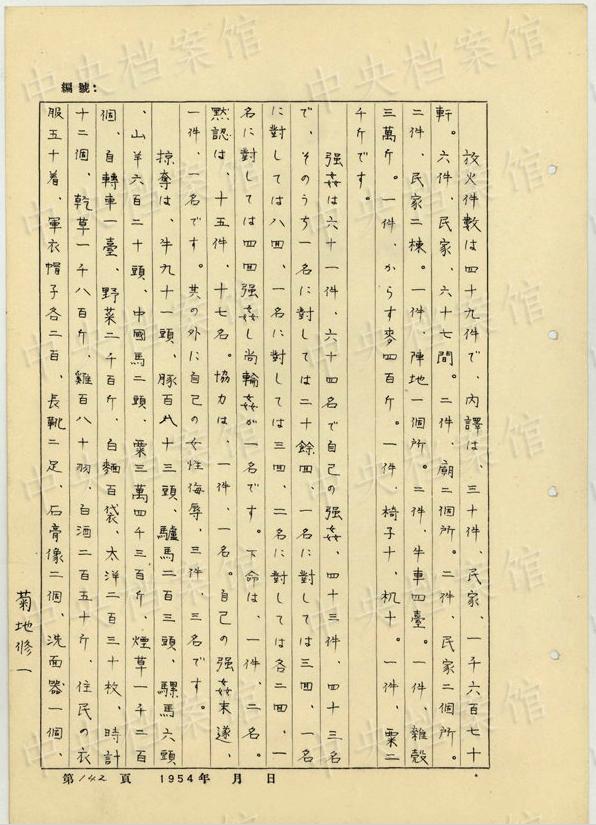 編號:
放火件数は四十九件で、内譯は、三十件、民家、一千六百七十
軒。六件、民家、六十七間。二件、廟二個所。二件、民家二個所。
二件、民家二棟。一件、陣地一個所。二件、牛車四臺。一件、雜殼
三萬斤。一件、からす麥四百斤。一件、椅子十、机十。一件、粟二
千斤です。
強姦は六十一件、六十四名で自己の強姦、四十三件、四十三名
で、そのうち一名に対しては二十餘回、一名に對しては三回、一名
に對しては八回、一名に對しては三回、二名に對しては各二回、一
名に対しては四回強姦し尚輪姦が一名です。下命は、一件、二名。
黙認は、十五件、十七名。協力は、一件、一名。自己の強姦未遂、
一件、一名です。其の外に自己の女性侮辱、三件、三名です。
掠奪は、牛九十一頭、豚百八十三頭、驢馬二百三頭、騾馬六頭
、山羊六百二十頭、中國馬二頭、粟三萬四千三百斤、煙草一千二百
個、自轉車一臺、野菜二千百斤、白麵百袋、大洋二百三十枚、時計
十二個、乾草一千八百斤、雞百八十羽、白酒二百五十斤、住民の衣
服五十着、軍衣帽子各二百、長靴二足、石膏像二個、洗面器一個、
菊地修一
第142頁 1954年 月 日
中央档案馆